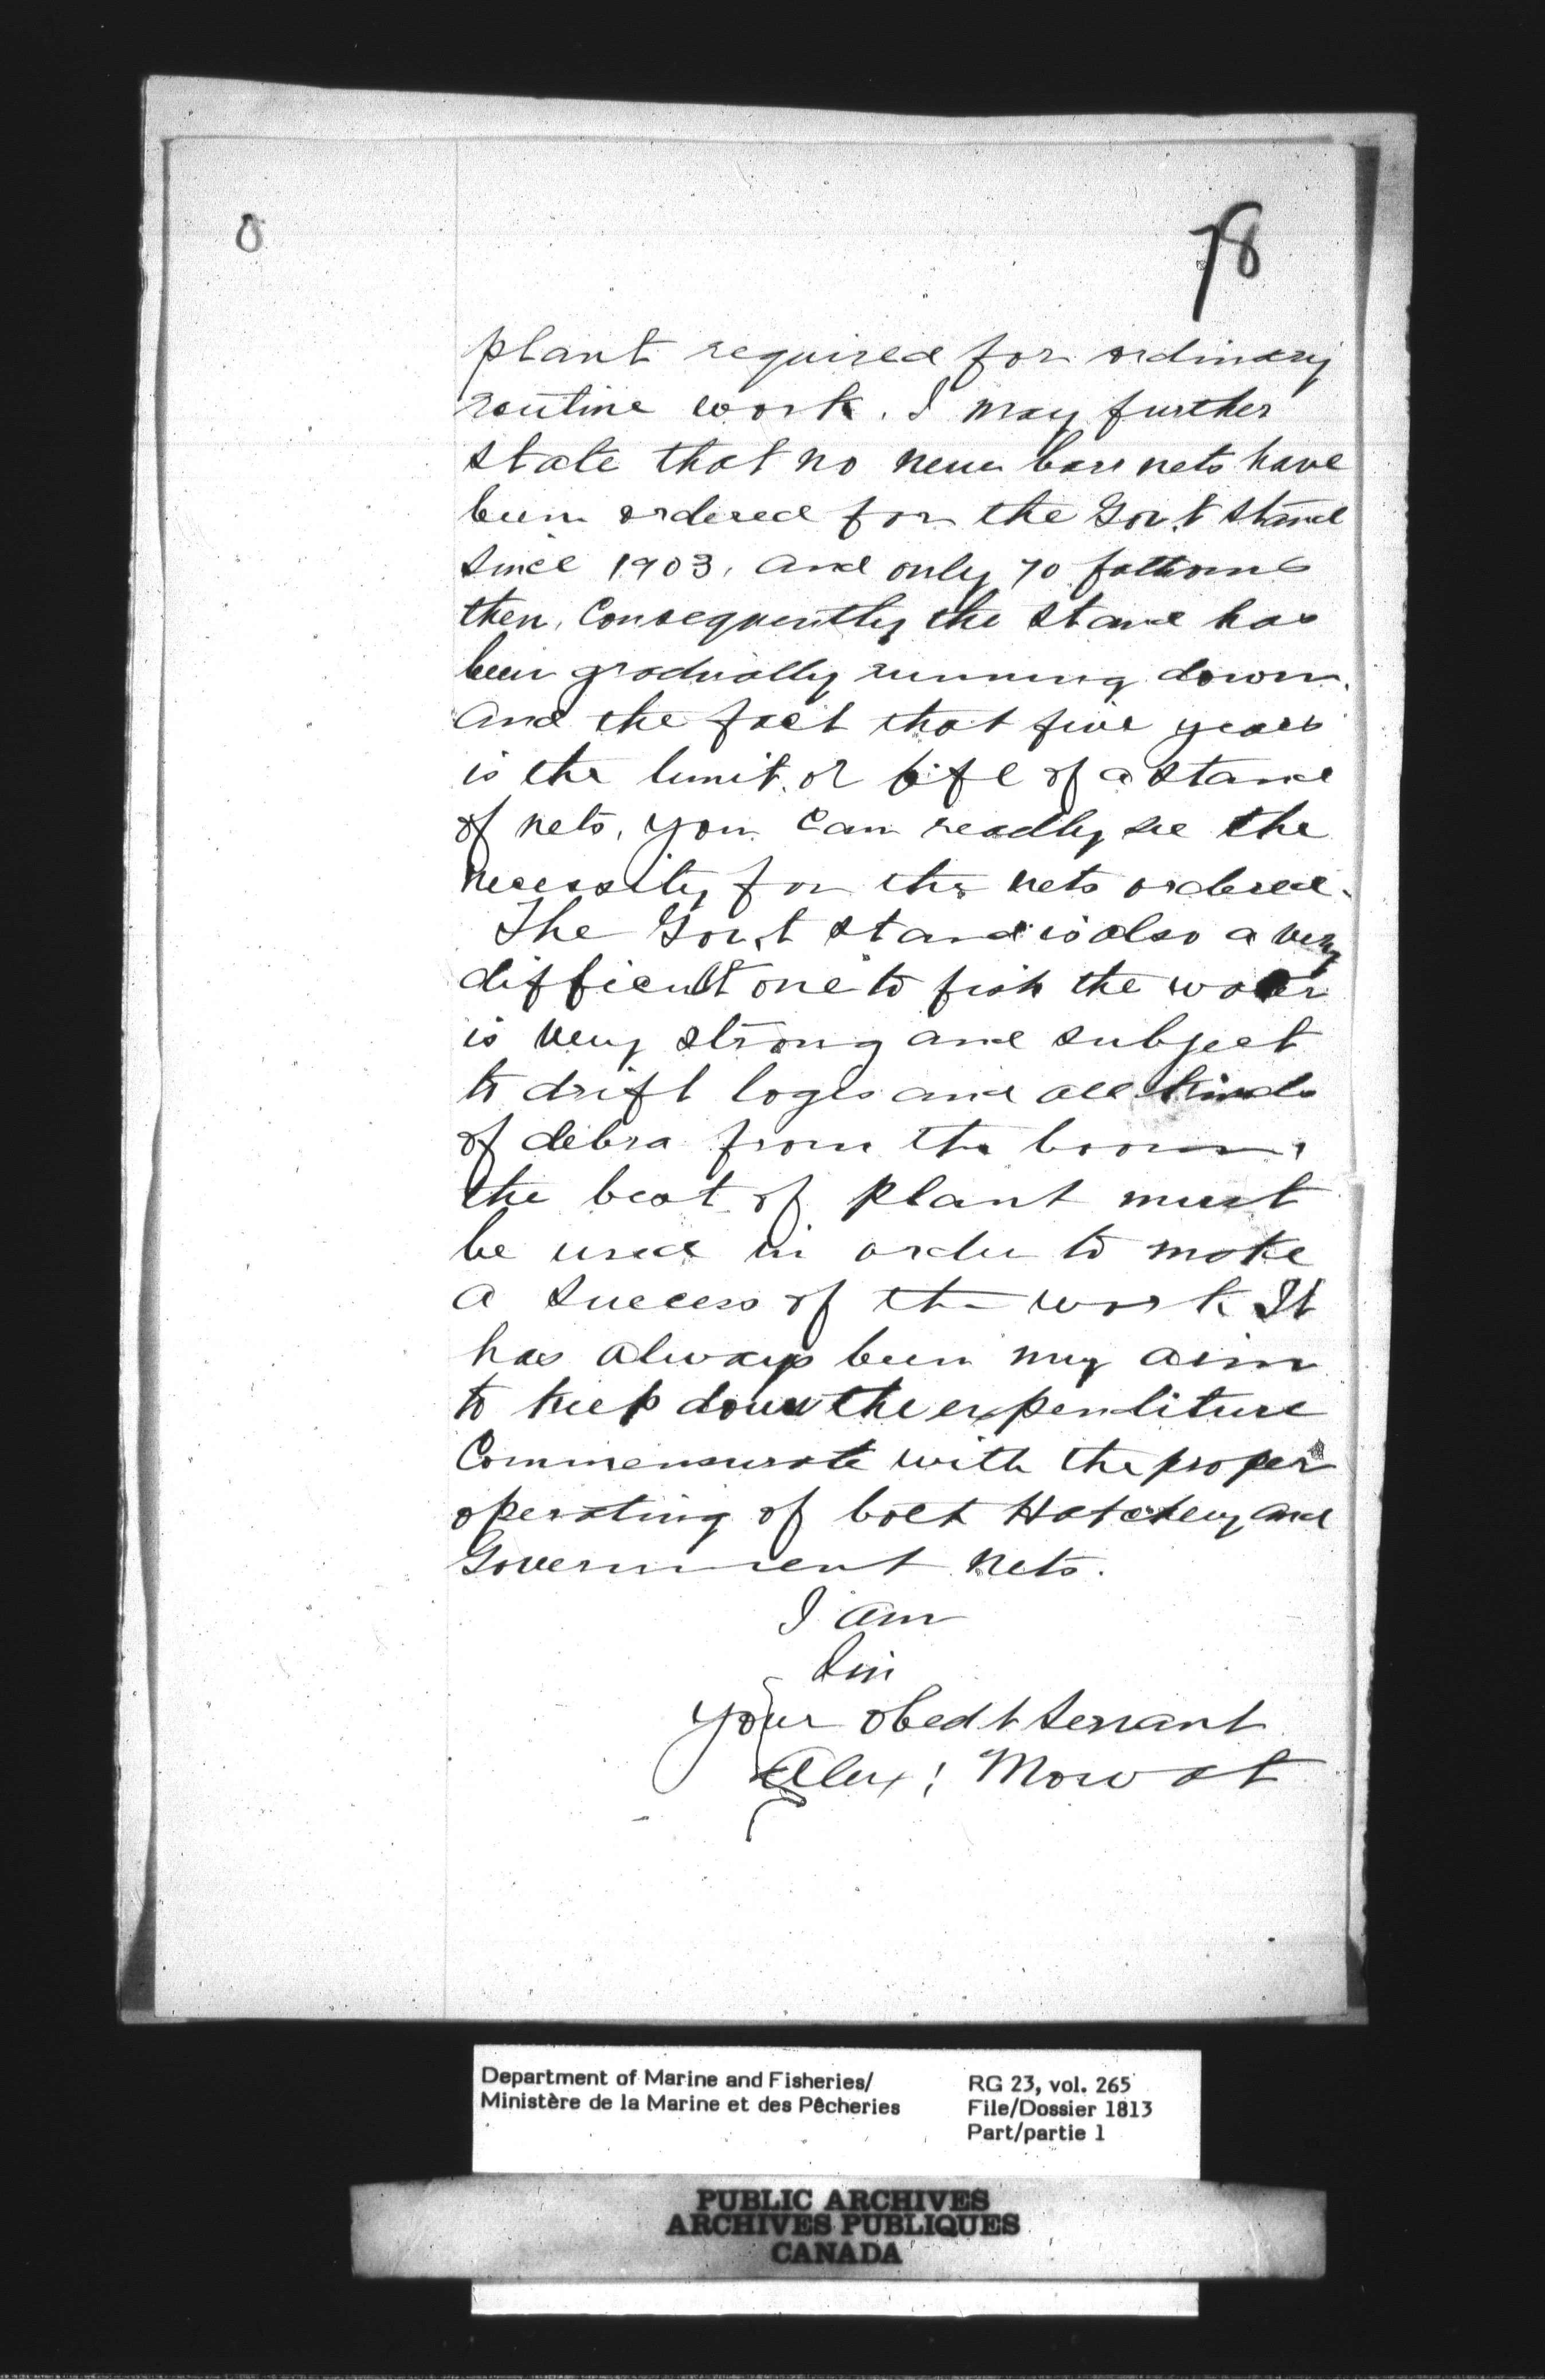 0
78
plant required for ordinary
routine work. I may further
state that no new bar nets have
been ordered for the Gov.t stand
since 1903, and only 70 fathoms
then, Consequently the stand has
been gradually running down.
and the fact that five years
is the limit or life of a stand
of nets, you can readly see the
necessity for the nets ordered.
The Gov.t stand is also a very
difficult one to fish the water
is very strong and subject
to drift logs and all kinds
of debra from the boom,
the best of plant must
be used in order to make
a success of the work It
has always been my aim
to keep down the expenditure
Commensurate with the proper
operating of both Hatchery and
Government nets.
I am
Sir
your obedt servant
Alex: Mowat
Department of Marine and Fisheries/
Ministère de la Marine et des Pêcheries
RG 23, vol. 265
File/Dossier 1813
Part/partie 1
PUBLIC ARCHIVES
ARCHIVES PUBLIQUES
CANADA